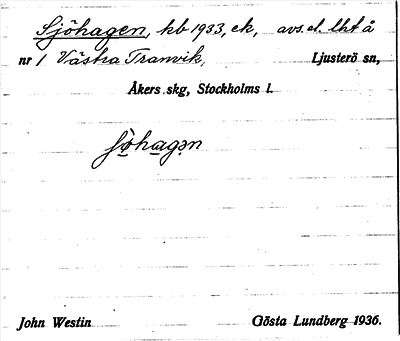 Sjöhagen, hb 1933, ek, avs. el. lht å
nr 1 Västra Tranvik, Ljusterö sn,
Åkers skg, Stockholms l.
John Westin Gösta Lundberg 1936.